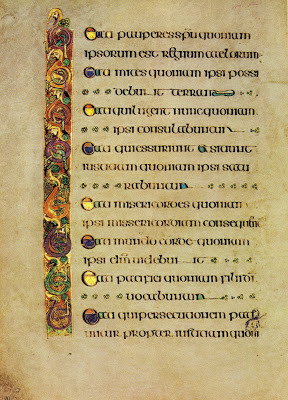 Beati pauperes spiritu quoniam
ipsorum est regnum caelorum
Beati mites quoniam ipsi possi
debunt terram
Beati qui lugent nunc quoniam
ipsi consulabuntur
Beati qui sitiunt
iustitiam quoniam ipsi satu
rabuntur
Beati misericordes quoniam
ipsi misericordiam consequentur
Beati mundo corde quoniam
ipsi dm videbunt
Beati pacifici quoniam filii di
vocabuntur
Beati qui persecutionem
propter iustitiam quoni